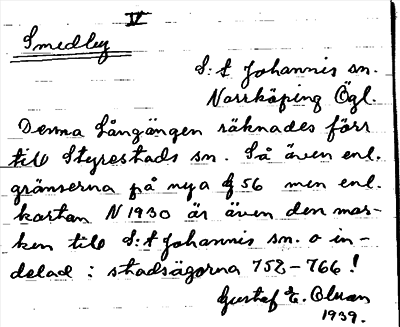 IV
Smedley
S:t Johannis sn.
Norrköping Ögl.
Denna Långängen räknades förr
till Styrestads sn. Så även enl.
gränserna på nya g 56 men enl.
kartan N 1930 är även den mar-
ken till S:t Johannis sn. o in-
delad i stadsägorna 752-766!
Gustaf E. Olsson
1939.